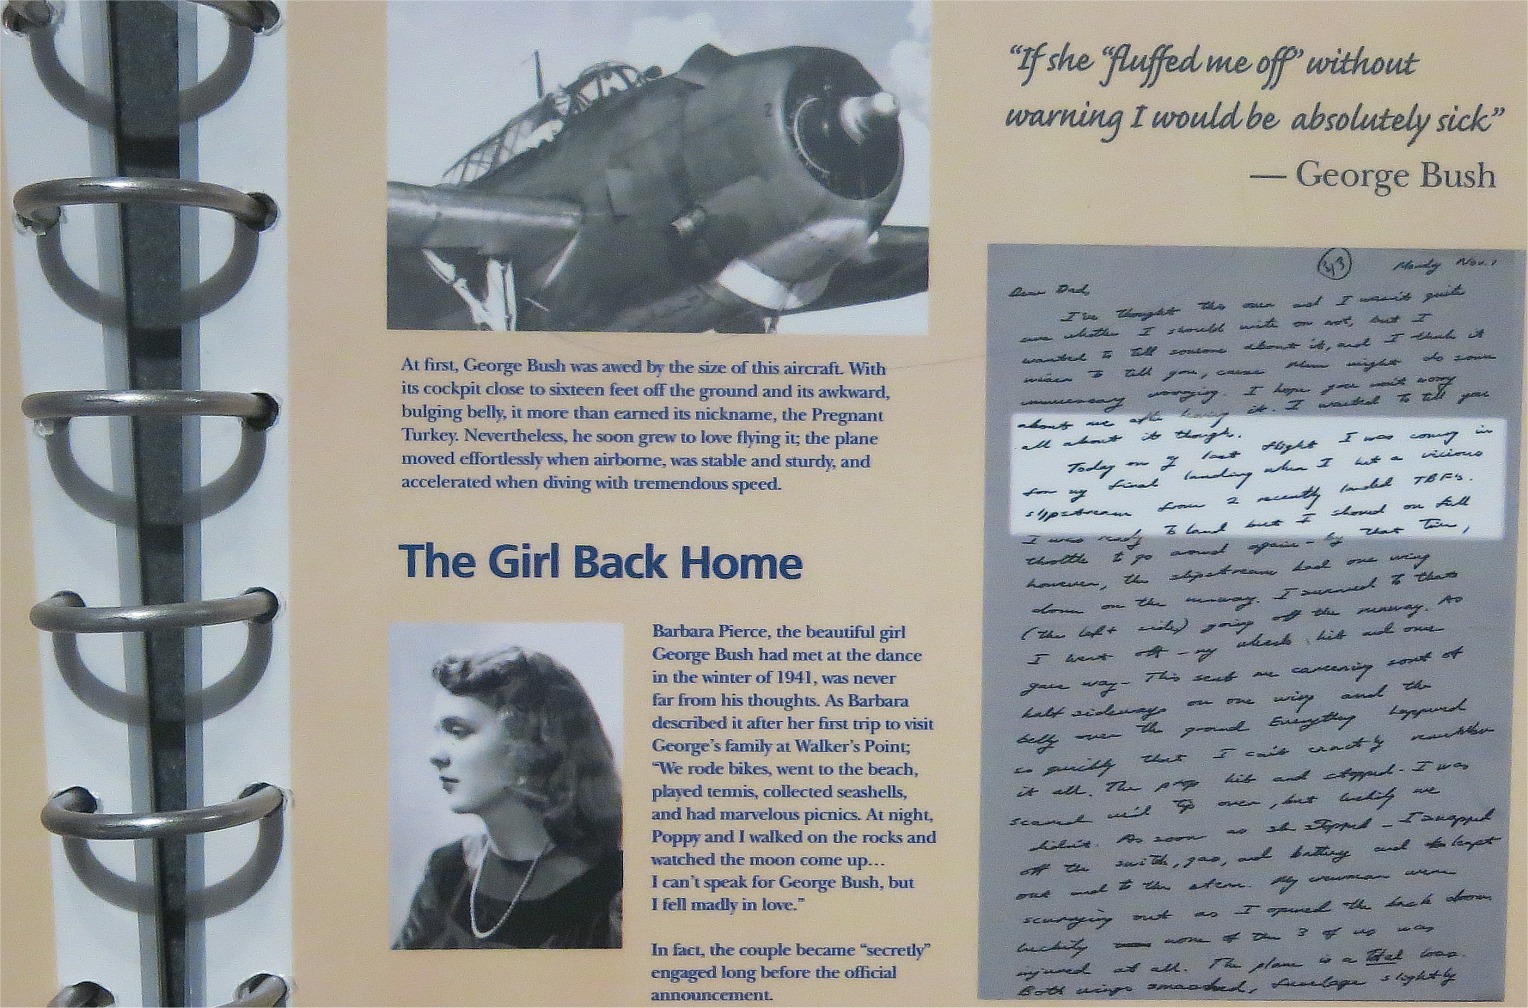 At first, George Bush was awed by the size of this aircraft. With
its cockpit close to sixteen feet off the ground and its awkward,
bulging belly, it more than earned its nickname, the Pregnant
Turkey. Nevertheless, he soon grew to love flying it; the plane
moved effortlessly when airborne, was stable and sturdy, and
accelerated when diving with tremendous speed.
The Girl Back Home
Barbara Pierce, the beautiful girl
George Bush had met at the dance
in the winter of 1941, was never
far from his thoughts. As Barbara
described it after her first trip to visit
George's family at Walker's Point;
"We rode bikes, went to the beach,
played tennis, collected seashells,
and had marvelous picnics. At night,
Poppy and I walked on the rocks and
watched the moon come up…
I can't speak for George Bush, but
I fell madly in love."
In fact, the couple became "secretly"
engaged long before the official
announcement.
"If she "fluffed me off" without
warning I would be absolutely sick"
— George Bush
43 Monday Nov. 1
Dear Dad,
I've thought this over and I wasn't quite
sure whether I should write or not, but I
wanted to tell someone about it, and I think it
wiser to tell you, cause Mum might do some
unnecessary worrying. I hope you won't worry
about me after hearing it. I wanted to tell you
all about it though.
Today on my last flight I was coming in
for my final landing when I hit a vicious
slipstream from 2 recently landed TBF's.
I was ready to land but I shoved on full
throttle to go around again - by that time,
however, the slipstream had one wing
down on the runway. I swerved to that
(the left side) going off the runway. As
I went off - my wheels hit and one
gave way - This sent me careening sort of
half sideways on one wing and the
belly over the ground Everything happened
so quickly that I can't exactly remember
it all. The prop hit and stopped. I was
scared we'd tip over, but luckily we
didn't. As soon as she stopped - I snapped
off the switch, gas, and battery and leapt
out and to the stern. My crewmen were
scurrying out as I opened the back door.
Luckily none of the 3 of us was
injured at all. The plane is a total loss.
Both wings smashed, fuselage slightly